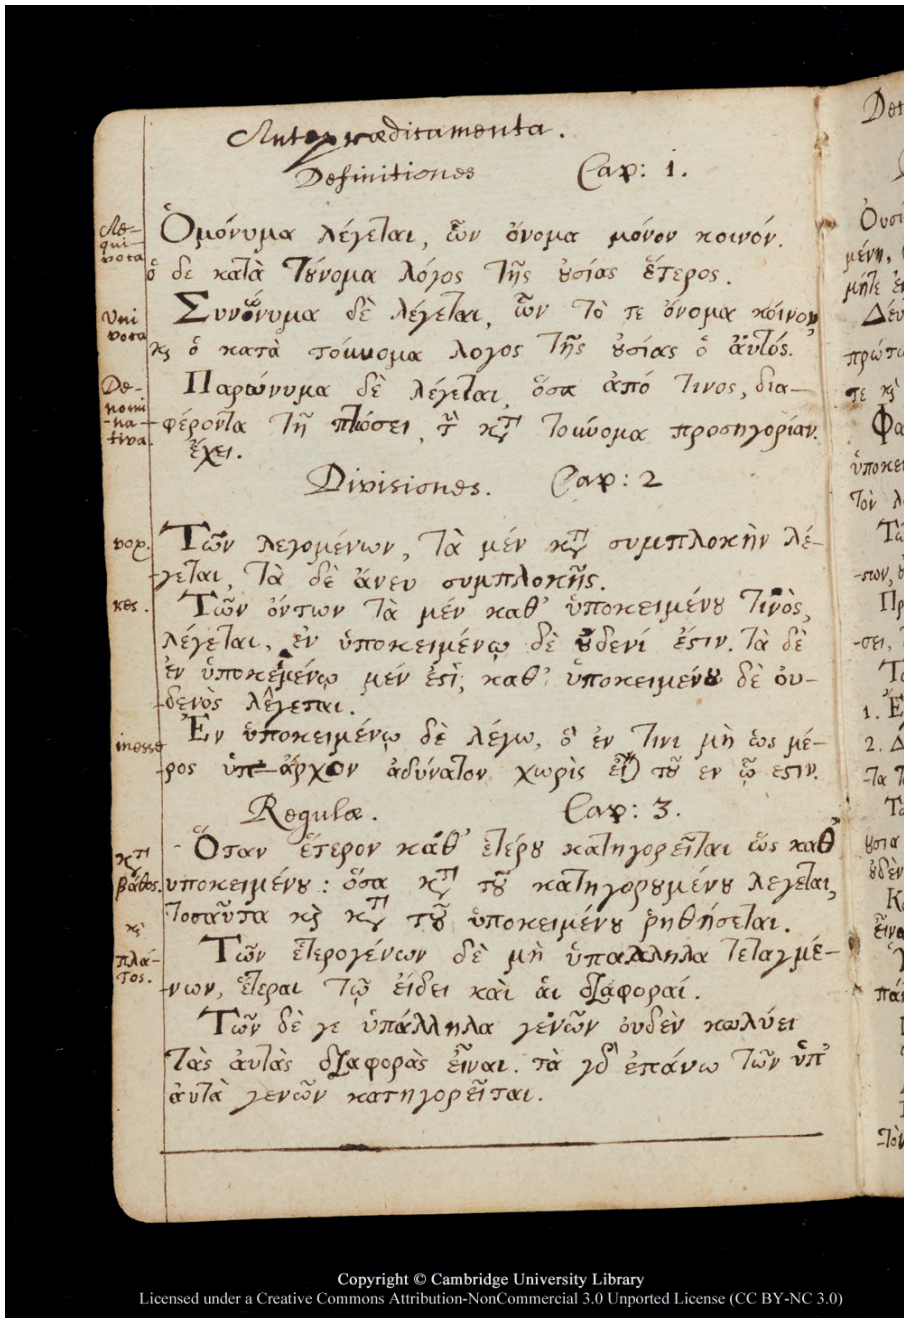 Antepraedicamenta.
Definitiones Cap: 1.
Ae-
qui-
voca
Ὁμόνυμα λέγεται, ὧν ὄνομα μόνον κοινόν.
ὁ δε κατὰ τὄνομα λόγος τῆς ȣσίας ἕτερος.
Uni
voca
Συνώνυμα δὲ λέγεται, ὧν τὸ τε ὄνομα κόινον,
κϛ ὁ κατὰ τοὔνομα λογος τῆς ȣσίας ὁ ἀυτός.
De-
nomi
-na-
tiva.
Παρώνυμα δὲ λέγεται, ὅσα ἀπό τινος, δια-
-φέροντα τῆ πτώσει, τὴν κτ τοὔνομα προσηγορίαν.
ἔχει.
Divisiones. Cap: 2
vox.
Τῶν λεγομένων, τὰ μέν κτ συμπλοκὴν λέ-
-γεται, τὰ δὲ ἄνευ συμπλοκῆς.
res.
Τῶν ὄντων τὰ μέν καθ' ὑποκειμένȣ τινὸς,
λέγεται, ἐν ὑποκειμένῳ δὲ ȣδενί ἐϛιν. τὰ δὲ
ἐν ὑποκειμένῳ μέν ἐϛὶ, καθ' ὑποκειμένȣ δὲ ὀυ-
-δενὸς λέγεται.
inesse
Ἐν ὑποκειμένῳ δὲ λέγω, ὃ ἐν τινι μὴ ὡς μέ-
-ρος ὑπάρχον ἀδύνατον χωρὶς εἶ) τȣ͂ εν ᾧ εϛιν.
Regulae. Cap: 3.
κτ
βάθος.
Ὅταν ἕτερον κάθ' ετέρȣ κατηγορεῖται ὡς καθ'
υποκειμένȣ: ὅσα κτ τȣ͂ κατηγορȣμένȣ λεγεται,
τοσαῦτα κὶ κτ τȣ͂ ὑποκειμένȣ ῥηθήσεται.
κὶ
πλά-
τος.
Τῶν ἑτερογένων δὲ μὴ ὑπαλληλα τεταγμέ-
-νων, ἕτεραι τῷ ἐίδει καὶ ἁι διαφοραί.
Τῶν δὲ γε ὑπάλληλα γενῶν ὀυδὲν κωλύει
τὰς ἀυτὰς διαφορὰς εἶναι. τὰ γδ ἐπάνω τῶν ὑπ'
ἀυτὰ γενῶν κατηγορεῖται.
Copyright © Cambridge University Library
Licensed under a Creative Commons Attribution-NonCommercial 3.0 Unported License (CC BY-NC 3.0)